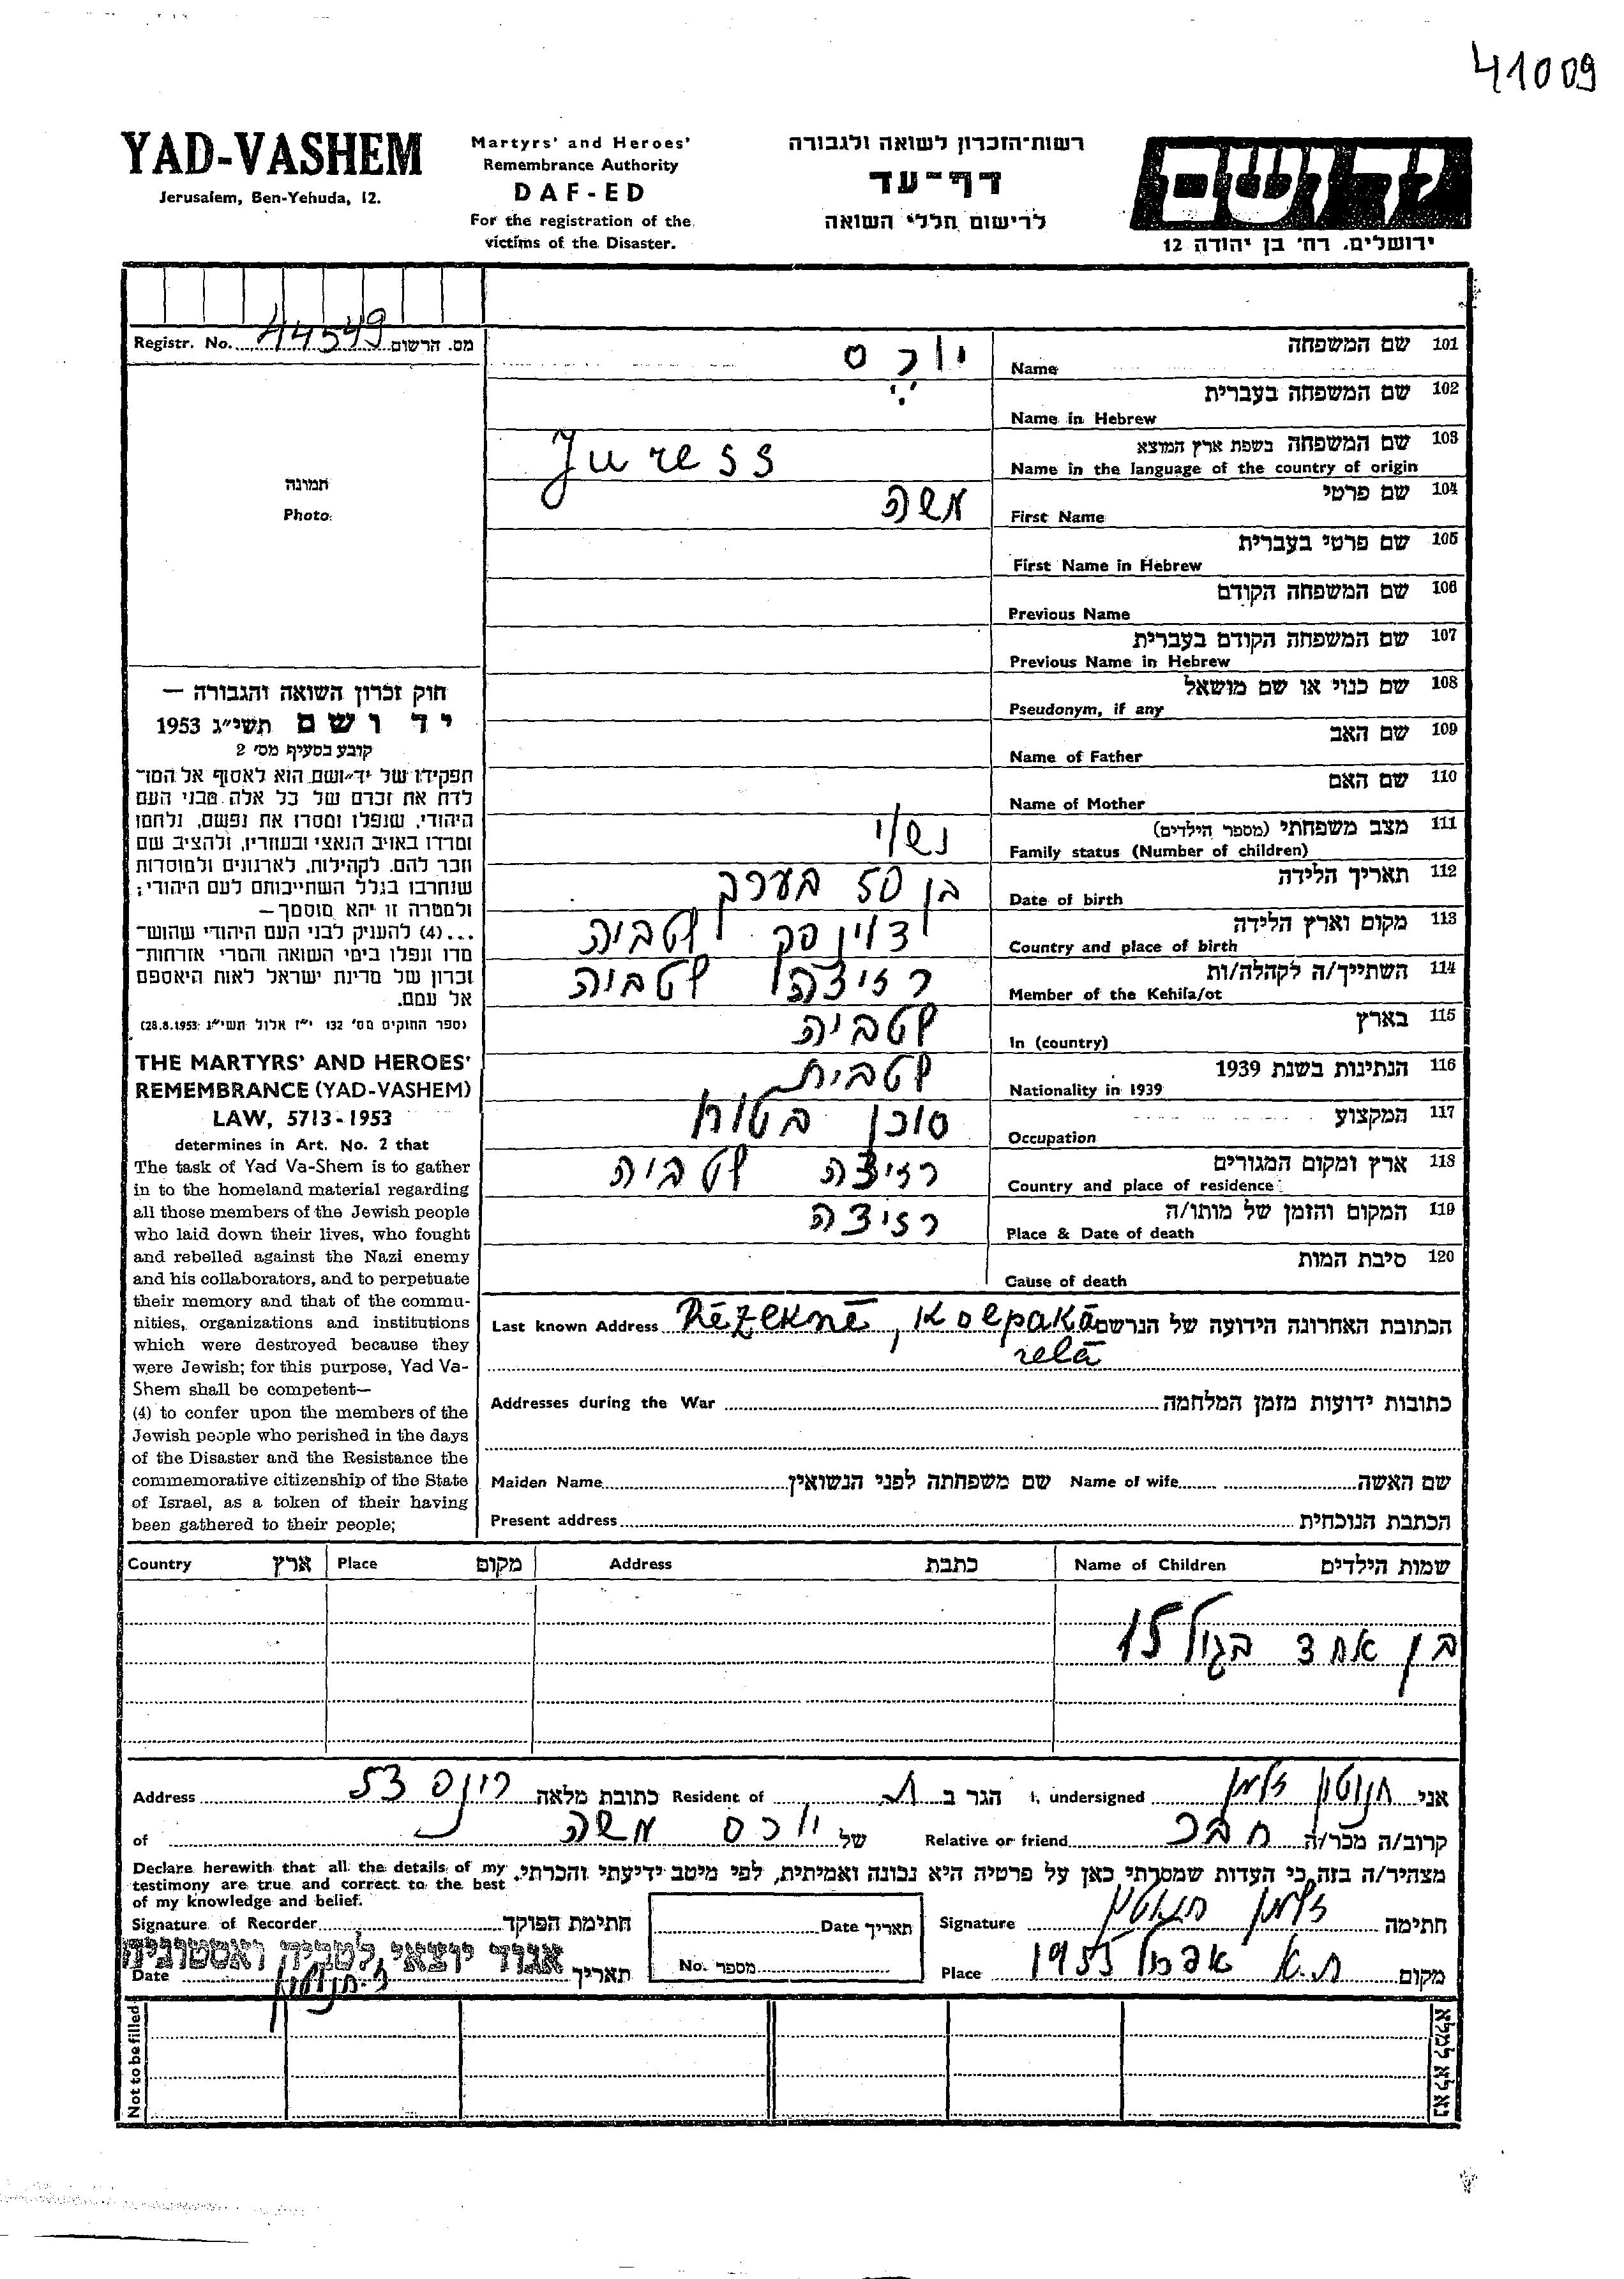 41009
YAD-VASHEM
Jerusalem, Ben-Yehuda, 12.
Martyrs' and Heroes'
Remembrance Authority
DAF-ED
For the registration of the
victims of the Disaster.
רשות־הזכרון לשואה ולגבורה
דף־עד
לרישום חללי השואה
יד ושם
ירושלים, רח' בן יהודה 12
Registr. No. 44549 מס. הרשום
תמונה
Photo
חוק זכרון השואה והגבורה —
יד ושם תשי״ג 1953
קובע בסעיף מס' 2
תפקידו של יד־ושם הוא לאסוף אל המו־
לדת את זכרם של כל אלה מבני העם
היהודי, שנפלו ומסרו את נפשם, נלחמו
ומרדו באויב הנאצי ובעוזריו, ולהציב שם
וזכר להם, לקהילות, לארגונים ולמוסדות
שנחרבו בגלל השתייכותם לעם היהודי;
ולמטרה זו יהא מוסמך—
...(4) להעניק לבני העם היהודי שהוש־
מדו ונפלו בימי השואה והמרי אזרחות־
זכרון של מדינת ישראל לאות היאספם
אל עמם.
(ספר החוקים מס' 132 י״ז אלול תשי״ג 28.8.1953)
THE MARTYRS' AND HEROES'
REMEMBRANCE (YAD-VASHEM)
LAW, 5713-1953
determines in Art. No. 2 that
The task of Yad Va-Shem is to gather
in to the homeland material regarding
all those members of the Jewish people
who laid down their lives, who fought
and rebelled against the Nazi enemy
and his collaborators, and to perpetuate
their memory and that of the commu-
nities, organizations and institutions
which were destroyed because they
were Jewish; for this purpose, Yad Va-
Shem shall be competent—
(4) to confer upon the members of the
Jewish people who perished in the days
of the Disaster and the Resistance the
commemorative citizenship of the State
of Israel, as a token of their having
been gathered to their people;
101 שם המשפחה
Name יורס
102 שם המשפחה בעברית
Name in Hebrew
103 שם המשפחה בשפת ארץ המוצא
Name in the language of the country of origin Juress
104 שם פרטי
First Name משה
105 שם פרטי בעברית
First Name in Hebrew
106 שם המשפחה הקודם
Previous Name
107 שם המשפחה הקודם בעברית
Previous Name in Hebrew
108 שם כנוי או שם מושאל
Pseudonym, if any
109 שם האב
Name of Father
110 שם האם
Name of Mother
111 מצב משפחתי (מספר הילדים)
Family status (Number of children) נשוי
112 תאריך הלידה
Date of birth בן 50 בערך
113 מקום וארץ הלידה
Country and place of birth דוינסק לטביה
114 השתייך/ה לקהלה/ות
Member of the Kehila/ot רזיצה לטביה
115 בארץ
In (country) לטביה
116 הנתינות בשנת 1939
Nationality in 1939 לטבית
117 המקצוע
Occupation סוכן בטוח
118 ארץ ומקום המגורים
Country and place of residence רזיצה לטביה
119 המקום והזמן של מותו/ה
Place & Date of death רזיצה
120 סיבת המות
Cause of death
Last known Address Rēzeknē, Kolpaka הכתובת האחרונה הידועה של הנרשם
ielā
Addresses during the War כתובות ידועות מזמן המלחמה
Maiden Name שם משפחתה לפני הנשואין Name of wife שם האשה
Present address הכתבת הנוכחית
Country ארץ Place מקום Address כתבת Name of Children שמות הילדים
בן אחד בגיל 15
אני זלמן I, undersigned הגר ב ת.א. Resident of כתובת מלאה Address
קרוב/ה מכר/ה חבר Relative or friend של יורס משה of
מצהיר/ה בזה כי העדות שמסרתי כאן על פרטיה היא נכונה ואמיתית, לפי מיטב ידיעתי והכרתי.
Declare herewith that all the details of my
testimony are true and correct to the best
of my knowledge and belief.
Signature of Recorder חתימת הפוקד
תאריך Date
חתימה זלמן Signature
אגוד יוצאי לטביה ואסטוניה
Date תאריך
No. מספר
מקום ת.א. אפריל 1955 Place
Not to be filled
נא לא למלא